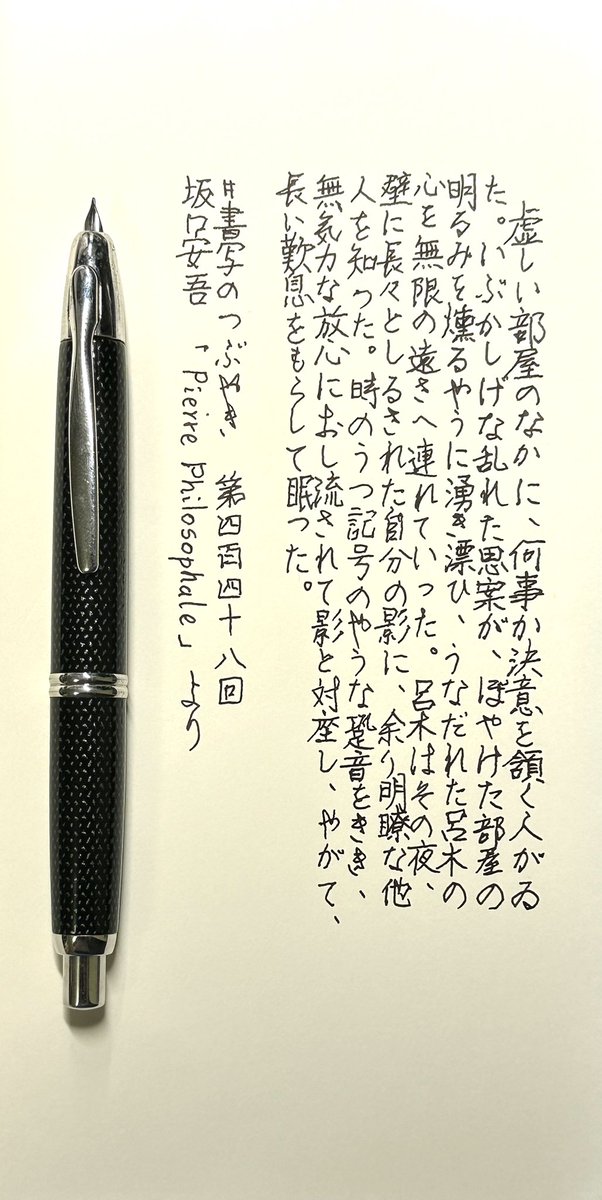 虚しい部屋のなかに、何事か決意を頷く人がゐ
た。いぶかしげな乱れた思案が、ぼやけた部屋の
明るみを燻るやうに湧き漂ひ、うなだれた呂木の
心を無限の遠さへ連れていった。呂木はその夜、
壁に長々としるされた自分の影に、余り明瞭な他
人を知った。時のうつ記号のやうな跫音をきき、
無気力な放心におし流されて影と対座し、やがて、
長い歎息をもらして眠った。
#書写のつぶやき 第四百四十八回
坂口安吾 「Pierre Philosophale」より